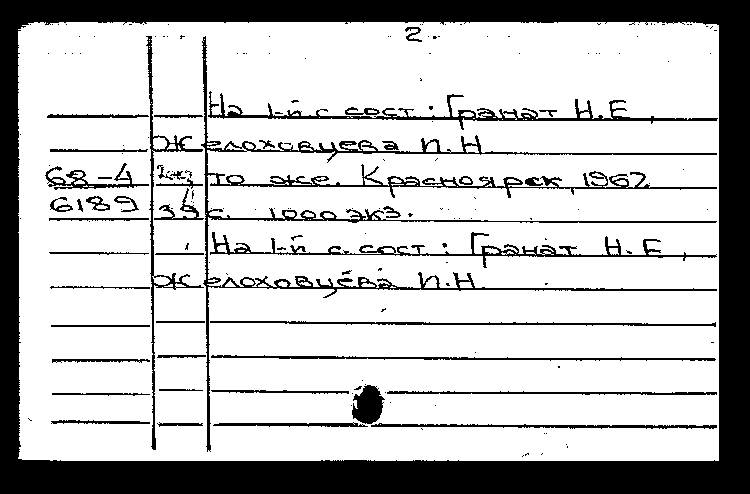 2.
На 1-й с. сост: Гранат Н.Е,
Желоховцева П.Н.
68-4 то же. Красноярск, 1967.
6189 39 с. 1000 экз.
На 1-й с. сост: Гранат Н.Е,
Желоховцева П.Н.